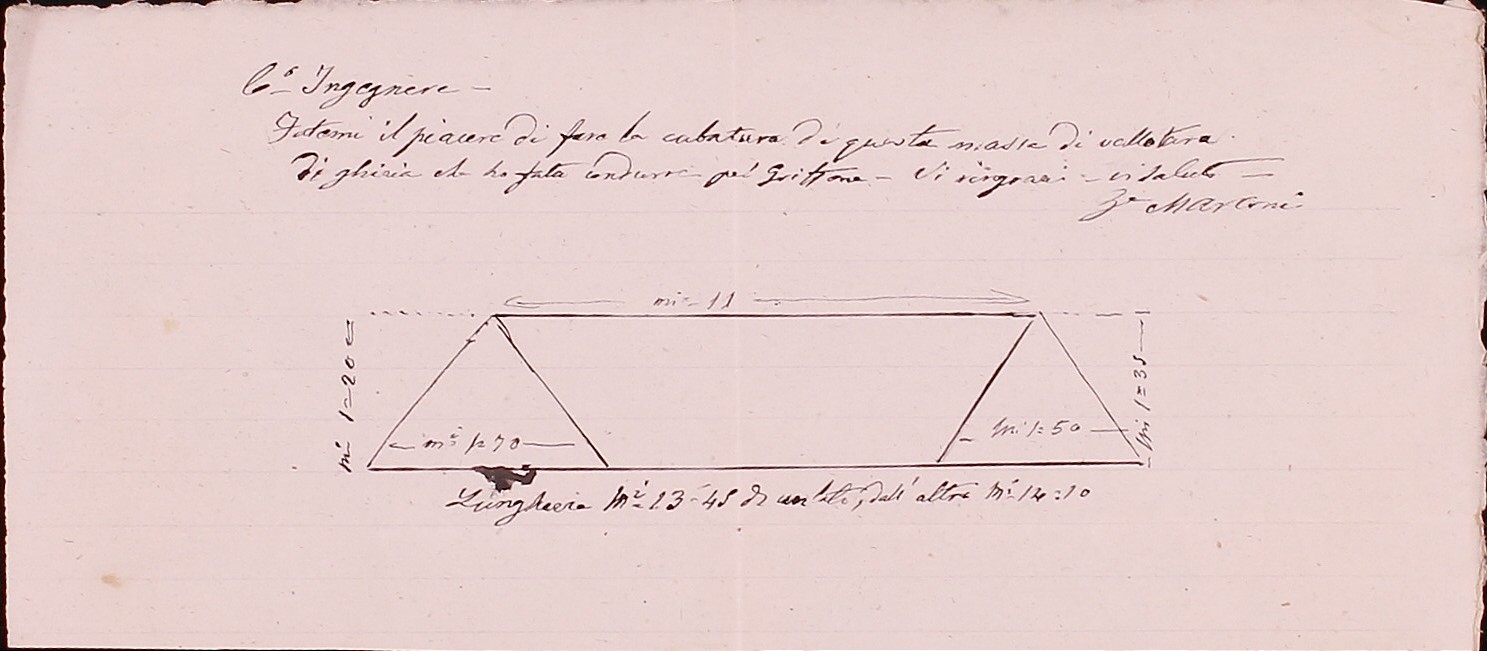 C.o Ingegnere -
Fatemi il piacere di fare la cubatura di questa massa di
di ghiaia che ho fata condurre pel Griffone - Vi ringrazio - vi saluto -
Marconi
mi = 11
mi 1=20
mi 1=70
mi 1=50
mi 1=35
Lunghezza mi 13=45 da un lato, dall'altro mi 14=10